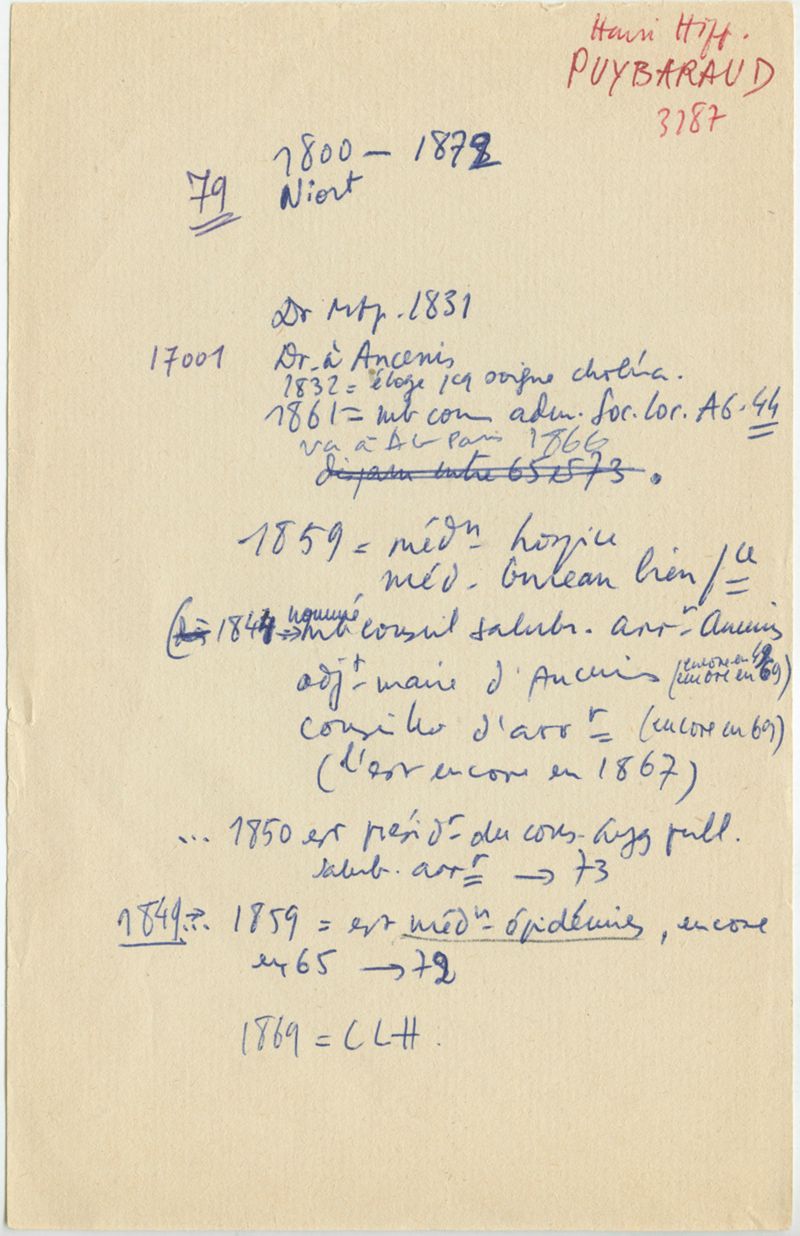 Henri Hipp.
PUYBARAUD
3187
1800 — 1872
79 Niort
Dr Mtp. 1831
17001 Dr. à Ancenis
1832 = éloge soigne choléra.
1861 = mb com adm. Soc. loc. AG. 44
va à AG Paris 1866
disparu entre 65 et 73.
1859 = médn hospice
méd. bureau bien fce
(1844 nommé mb conseil salubr. arrt Ancenis
adjt maire d'Ancenis (encore en 69)
conseiller d'arrt (encore en 69)
(l'est encore en 1867)
... 1850 est présidt du cons. hyg publ.
salub. arrt → 73
1849 → ... 1859 = est médn épidémies, encore
en 65 → 72
1869 = CLH.